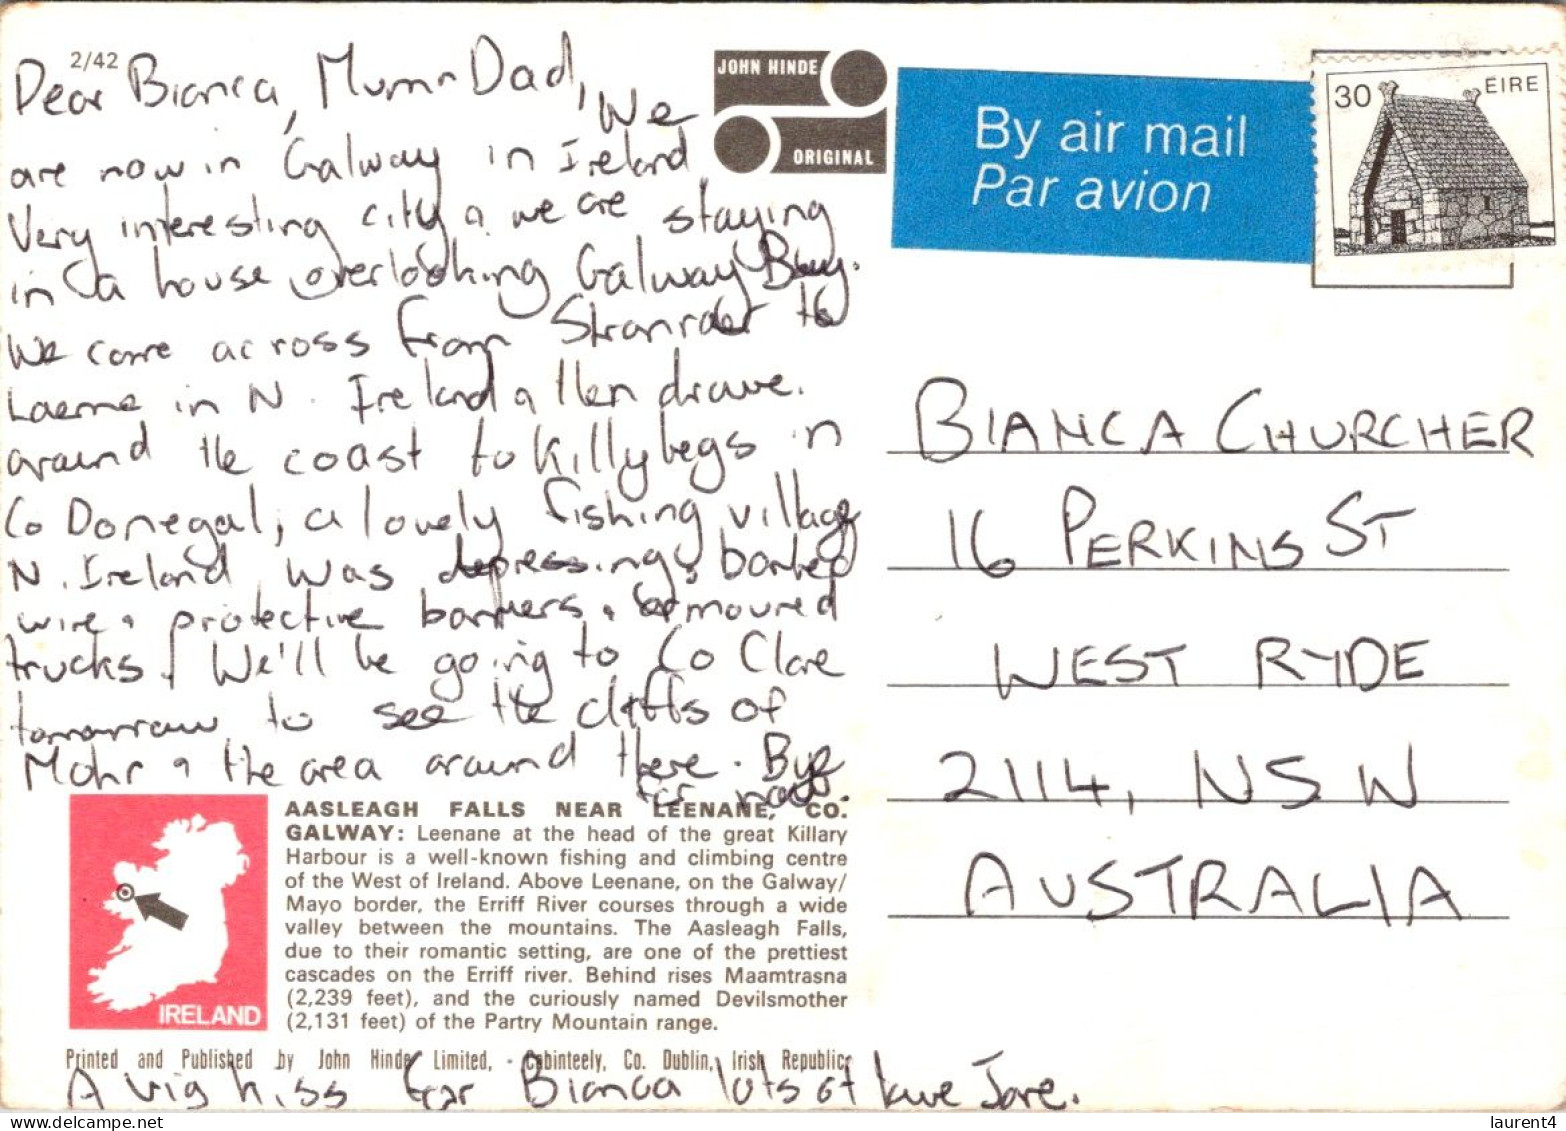 2/42
Dear Bianca, Mum & Dad, We
are now in Galway in Ireland.
Very interesting city & we are staying
in a house overlooking Galway Bay.
We came across from Stranraer to
Laerne in N. Ireland & then drove.
around the coast to Killybegs in
Co Donegal, a lovely fishing village
N. Ireland was depressing, barbed
wire & protective barriers & armoured
trucks. We'll be going to Co Clare
tomorrow to see the cliffs of
Mohr & the area around there. Bye
for now.
JOHN HINDE
ORIGINAL
By air mail
Par avion
30 ÉIRE
BIANCA CHURCHER
16 PERKINS ST
WEST RYDE
2114, NSW
AUSTRALIA
IRELAND
AASLEAGH FALLS NEAR LEENANE, CO.
GALWAY: Leenane at the head of the great Killary
Harbour is a well-known fishing and climbing centre
of the West of Ireland. Above Leenane, on the Galway/
Mayo border, the Erriff River courses through a wide
valley between the mountains. The Aasleagh Falls,
due to their romantic setting, are one of the prettiest
cascades on the Erriff river. Behind rises Maamtrasna
(2,239 feet), and the curiously named Devilsmother
(2,131 feet) of the Partry Mountain range.
Printed and Published by John Hinde Limited, - Cabinteely, Co. Dublin, Irish Republic
A big kiss for Bianca lots of love Jane.
laurent4